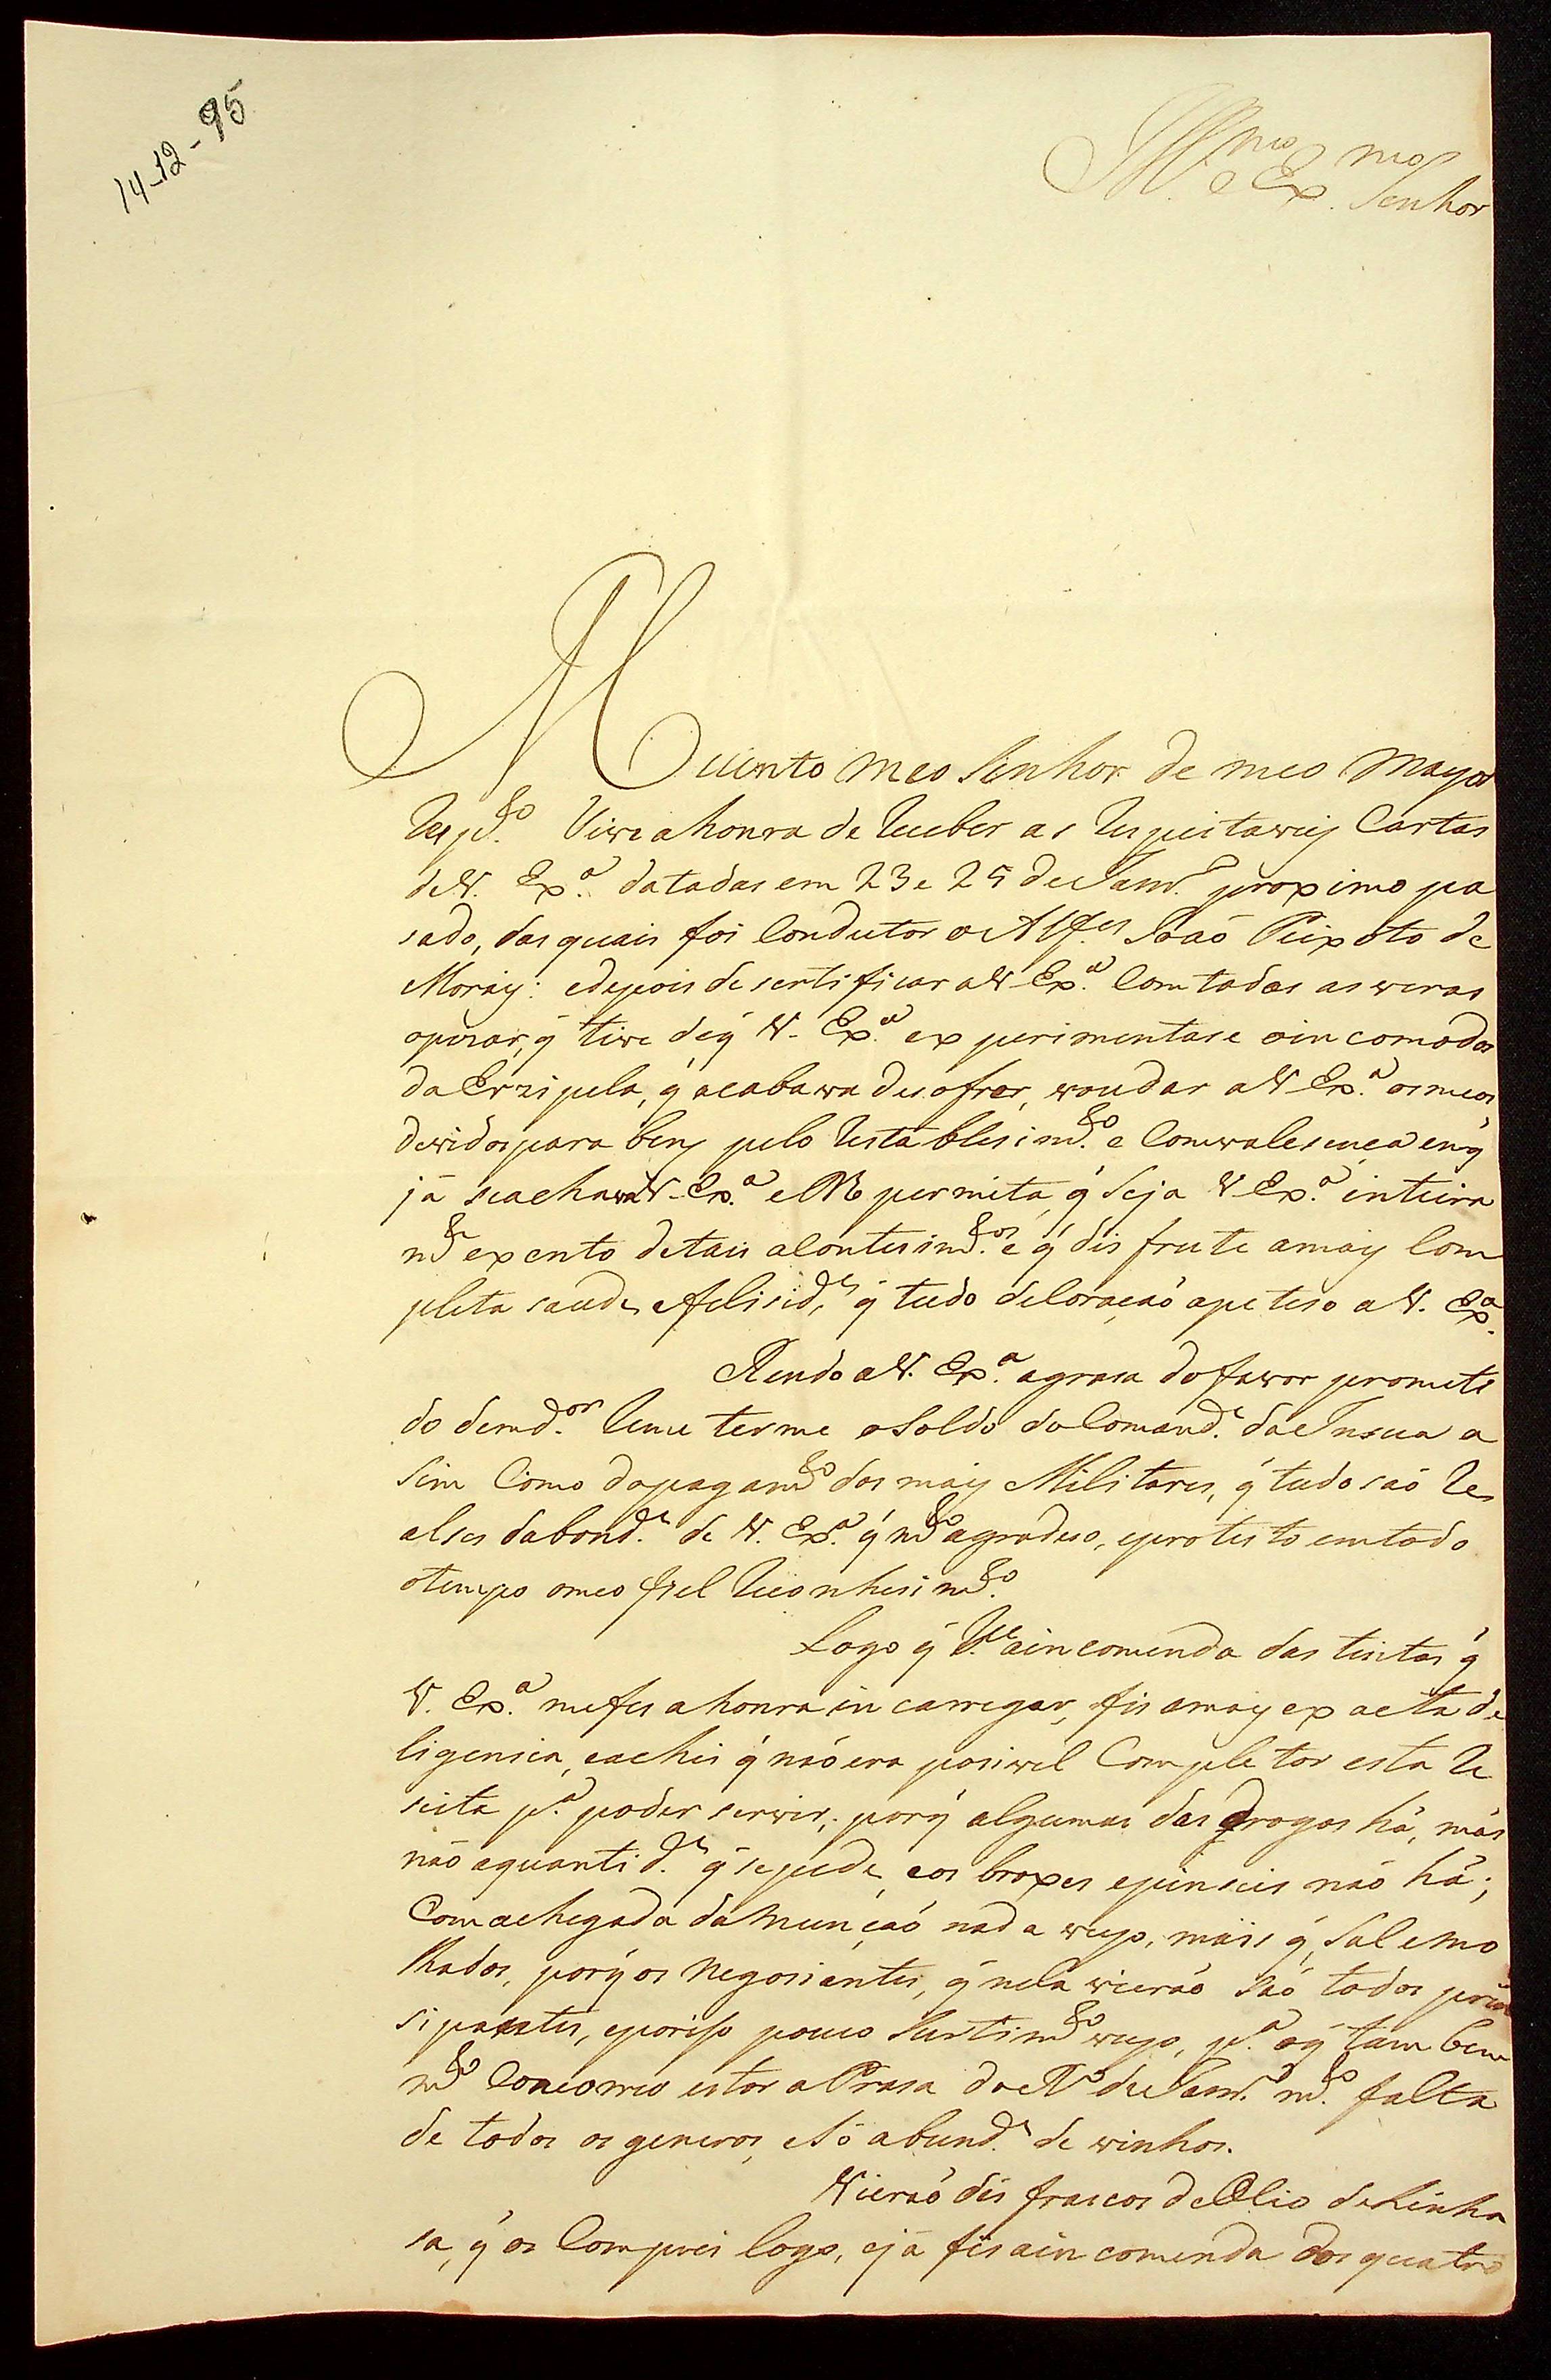 14-12-95
Ill.mo e Ex.mo Senhor
Muinto meo Senhor de meo mayor
Resp.to Tive a honra de Receber as Respeitaveis Cartas
de V. Ex.a datadas em 23 e 25 de Janr.o proximo pa
sado, das quais foi Condutor o Alf.es João Peixoto de
Morais: e depois de sertificar a V. Ex.a Com todas as veras
opezar, q̃ tive de q̃ V. Ex.a experimentase oincomodo
da Erzipela, q̃ acabava de sofrer, vou dar a V. Ex.a os meos
devidos para bens pelo Restablesim.to e Comvalesença em q̃
já se achava V. Ex.a e permita q̃ Seja V. Ex.a inteira
m.te exzento de tais acontesim.tos e q̃ disfrute a mais Com
pleta saude, e felisid.es q̃ tudo de Coração apeteso a V. Ex.a
Rendo a V. Ex.a agrasa do favor prometi
do de md.or Remeterme o Soldo do Comand.e da Insua a
Sim Como do pagam.to dos mais Militares, q̃ tudo são Re
alses da bond.e de V. Ex.a q̃ m.to agradeso, e protesto em todo
o tempo o meo fiel Reconhesim.to
Logo q̃ R.ce a incomenda das tintas q̃
V. Ex.a me fes a honra in carregar, fis a mais exacta de
ligensia, e achei q̃ não era posivel Completar esta Re
seita p.a poder servir; porq̃ algumas das drogas há, mas
não a quantid.e q̃ se pede, e os broxes e pinseis não há;
Com a chegada da Munção nada veyo, mais q̃ Sal e mo
lhados, porq̃ os Negosiantes, q̃ nela vierão são todos prin
sipiantes, e poriso pouco Surtim.to veyo, p.a o q̃ tambem
m.to Concorreo estar a Prasa do R.o de Janr.o m.to falta
de todos os generos, e Só abund.e de vinhos.
Vierão dés frascos de Olio de Linha
sa, q̃ os Comprei logo, e já fis a incomenda dos quatro